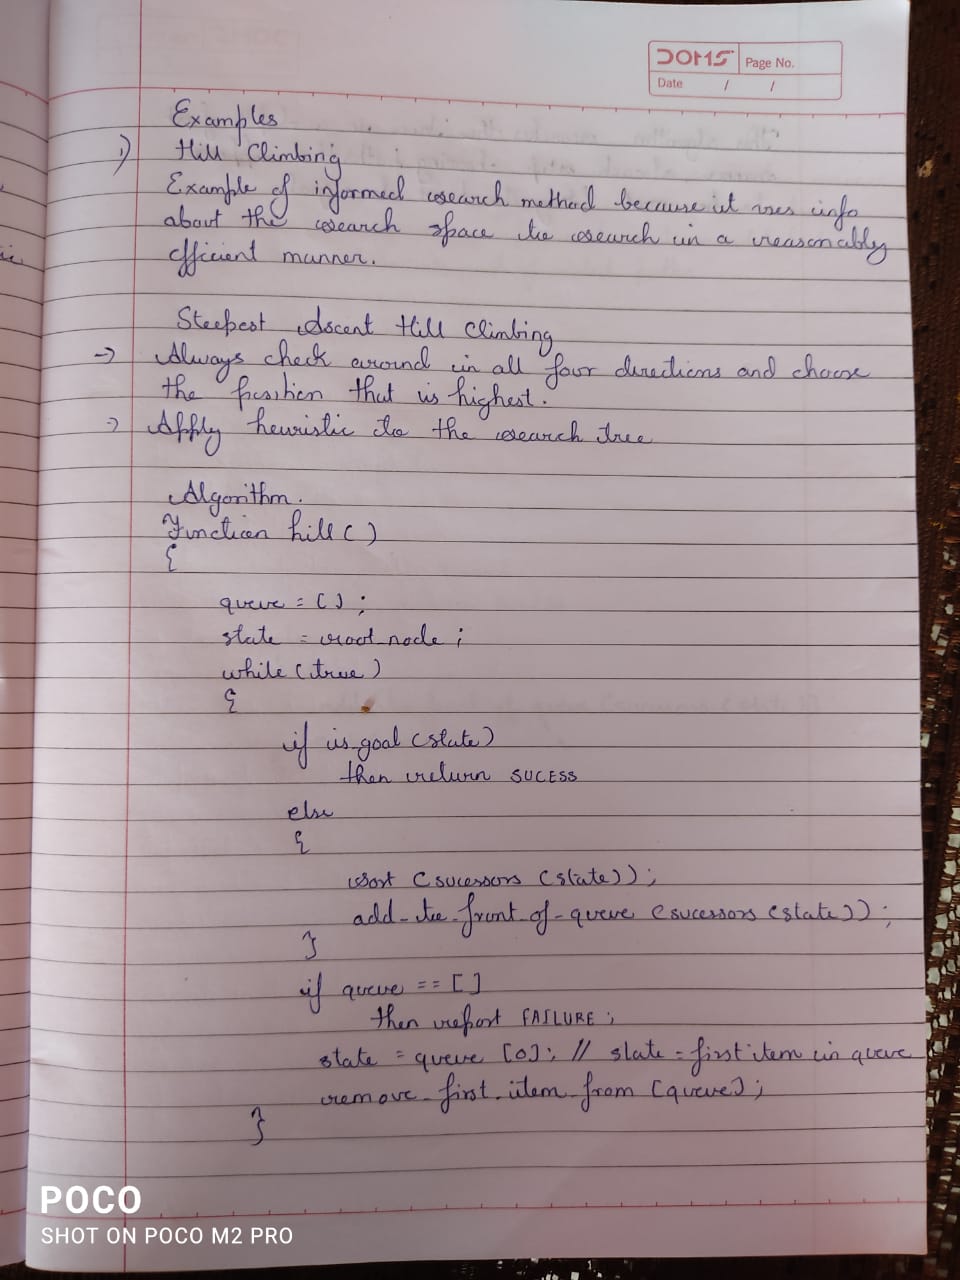 DOMS
Page No.
Date / /
Examples
1) Hill Climbing
Example of informed search method because it uses info
about the search space to search in a reasonably
efficient manner.
Steepest Ascent Hill Climbing
→ Always check around in all four directions and choose
the position that is highest.
→ Apply heuristic to the search tree
Algorithm.
Function hill( )
{
queue = [ ] ;
state = root_node ;
while (true)
{
if is_goal (state)
then return SUCESS
else
{
sort (sucessors (state)) ;
add-to-front-of-queue (sucessors (state)) ;
}
if queue == [ ]
then report FAILURE ;
state = queue [0] ; // state = first item in queue
remove-first-item-from [queue] ;
}
POCO
SHOT ON POCO M2 PRO